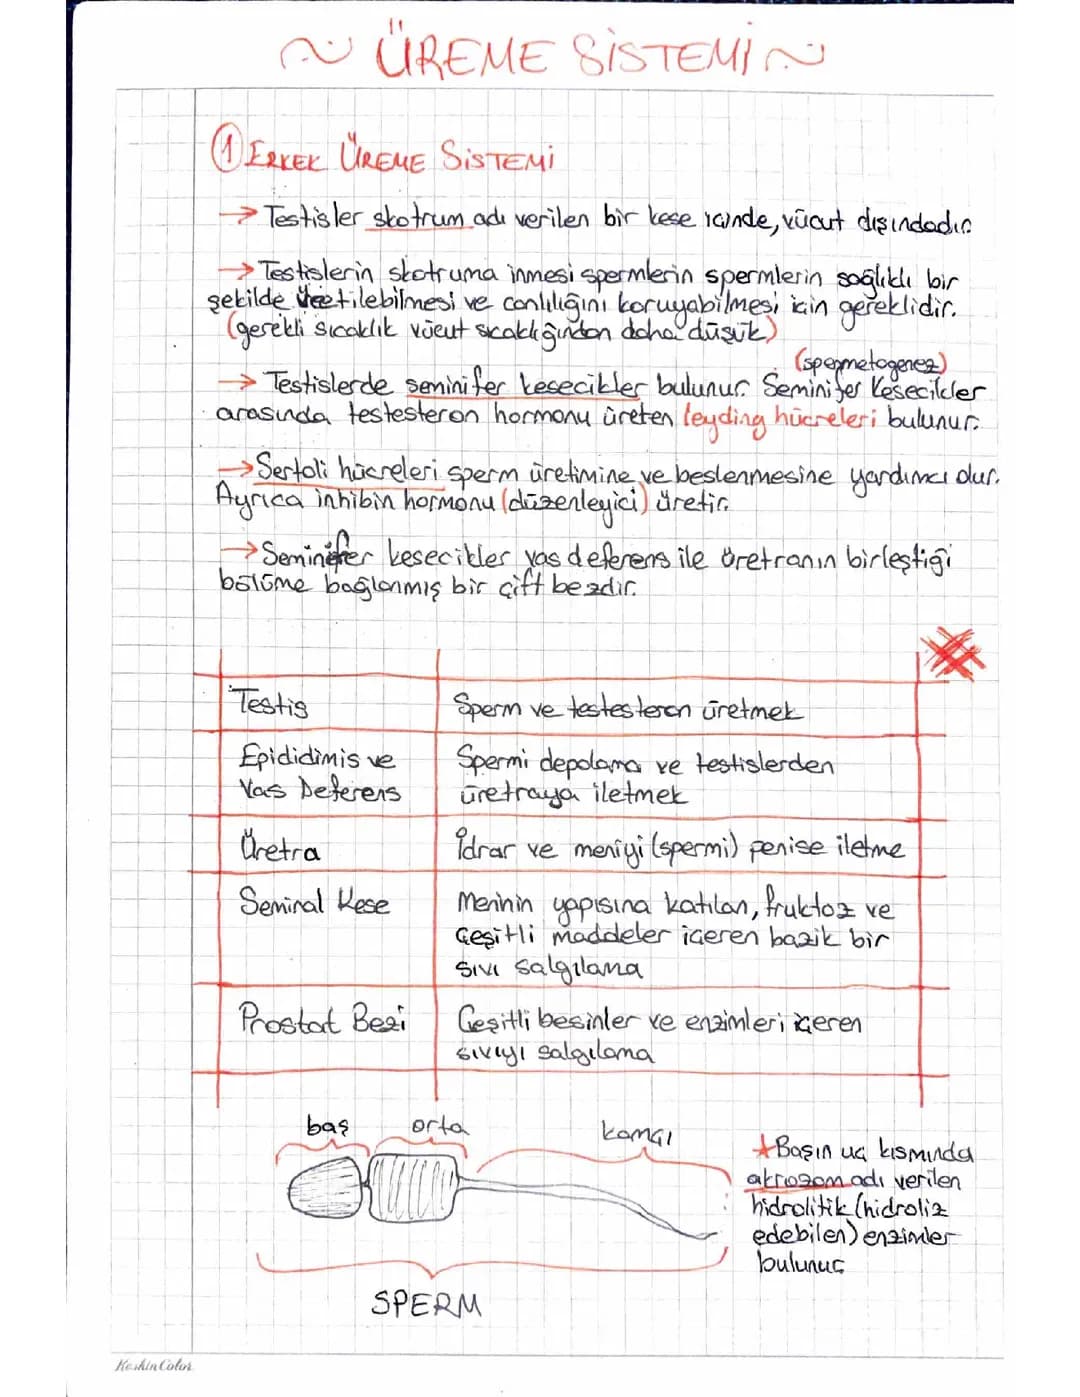 ~ ÜREME SİSTEMİ ~
① ERKEK ÜREME SİSTEMİ
→ Testisler skotrum adı verilen bir kese içinde, vücut dışındadır.
→ Testislerin skotruma inmesi spermlerin spermlerin sağlıklı bir
şekilde üretilebilmesi ve canlılığını koruyabilmesi için gereklidir.
(gerekli sıcaklık vücut sıcaklığından daha düşük)
(spermetogenez)
→ Testislerde seminifer kesecikler bulunur. Seminifer kesecikler
arasında testesteron hormonu üreten leyding hücreleri bulunur.
→ Sertoli hücreleri sperm üretimine ve beslenmesine yardımcı olur.
Ayrıca inhibin hormonu (düzenleyici) üretir.
→ Seminifer kesecikler vas deferens ile üretranın birleştiği
bölüme bağlanmış bir çift bezdir.
Testis Sperm ve testesteron üretmek
Epididimis ve Spermi depolama ve testislerden
Vas Deferens üretraya iletmek
Üretra İdrar ve meniyi (spermi) penise iletme
Seminal Kese Meninin yapısına katılan, fruktoz ve
çeşitli maddeler içeren bazik bir
sıvı salgılama
Prostat Bezi Çeşitli besinler ve enzimleri içeren
sıvıyı salgılama
baş orta kamçı
★ Başın uç kısmında
akrozom adı verilen
hidrolitik (hidroliz
edebilen) enzimler
bulunur
SPERM
KeskinColor